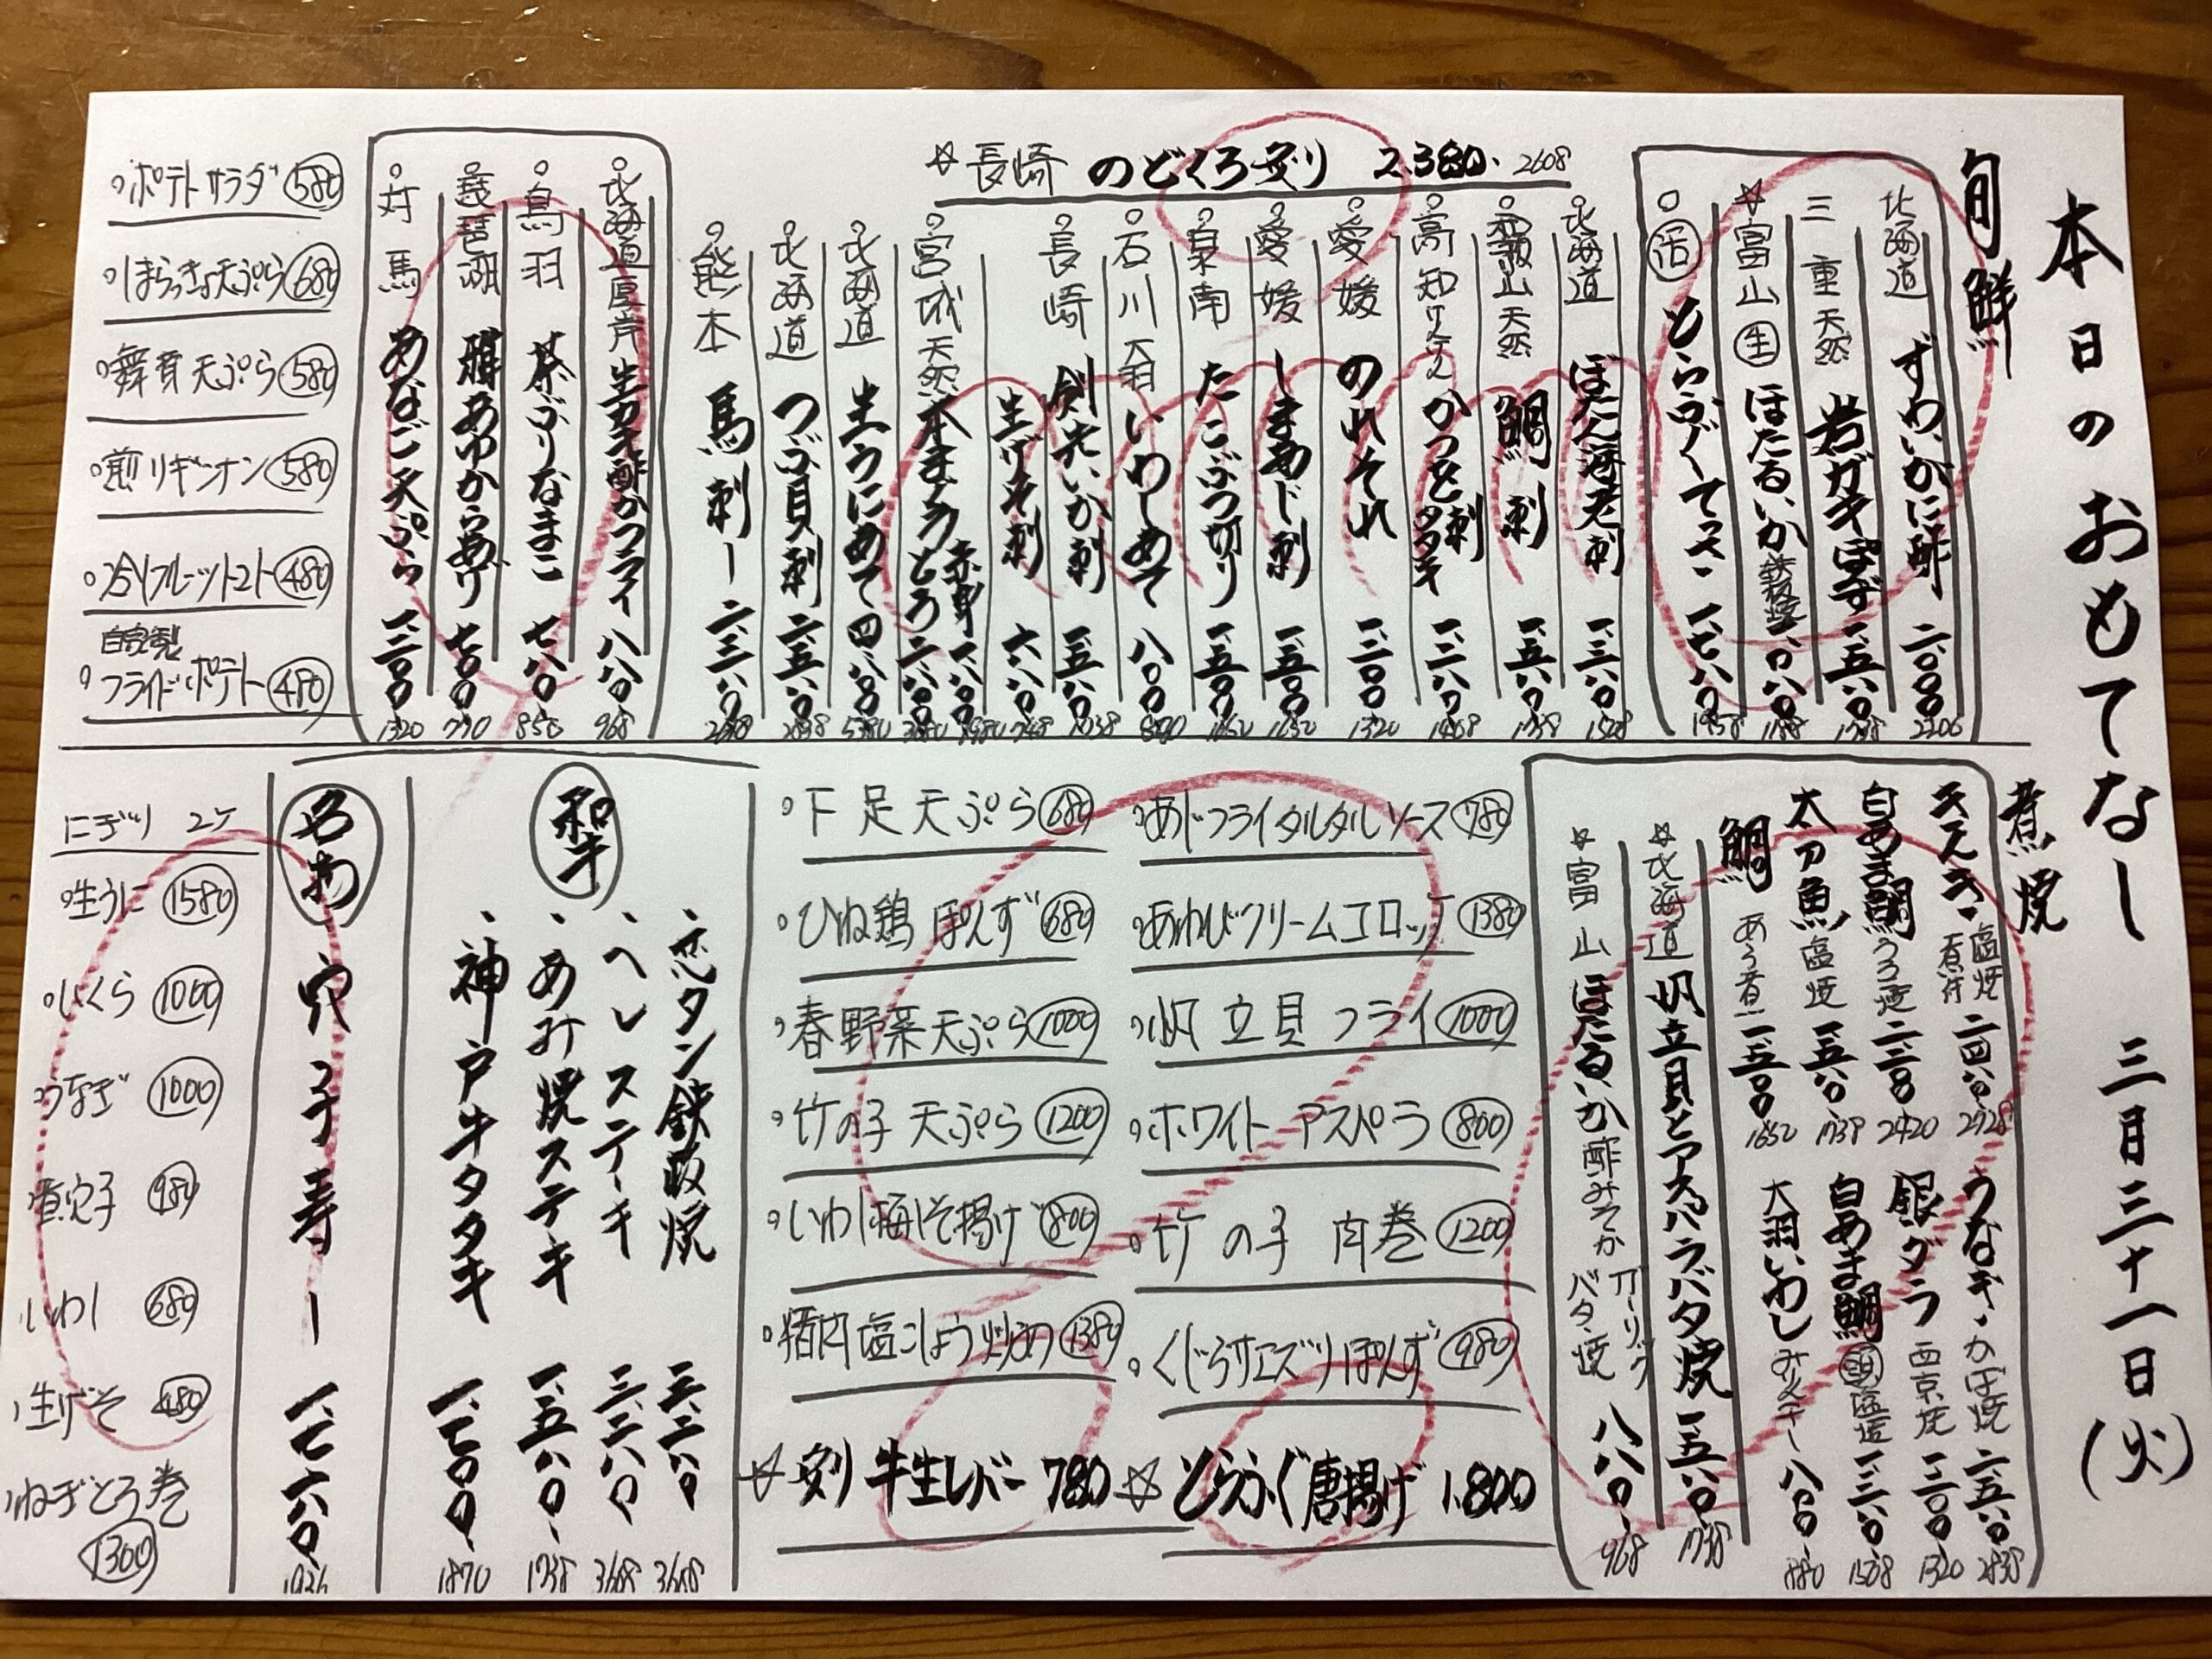 本日のおもてなし 三月三十一日(火)
旬鮮
北海道 ずわいがに酢 二、000 2200
三重天然 岩ガキぽんず 一、五八0 1738
☆富山 生 ほたるいか 鉄板焼 一、0八0 1188
活 とらふぐてっさ 一、七八0 1958
☆長崎 のどくろ炙り 2.380. 2608
北海道 ぼたん海老刺 一、三八0 1518
和歌山天然 鯛刺 一、五八0 1738
高知 かつを刺 タタキ 一、二八0 1408
愛媛 のれそれ 一、二00 1320
愛媛 しまあじ刺 一、五00 1650
泉南 たこぶつ切り 一、五00 1650
石川 大羽 いわしあて 八00 880
長崎 剣先いか刺 一、五八0 1738
生げそ刺 六八0 748
宮城天然 本まぐろ 赤身 一、八00 1980 とろ 二、八00 3080
北海道 生うにあて 四、八00 5280
北海道 つぶ貝刺 二、五八0 2838
熊本 馬刺ー 二、三八0 2618
北海道厚岸 生カキ 酢かフライ 八八0 968
鳥羽 茶ぶりなまこ 七八0 858
琵琶湖 稚あゆからあげ 七00 770
対馬 あなご天ぷら 一、二00 1320
ポテトサラダ 580
はらっきょ天ぷら 680
舞茸天ぷら 580
煎りギンナン 580
冷しフルーツトマト 480
自家製
フライドポテト 480
煮焼
天然きんき 塩焼 煮付 二、四八0 2728
白あま鯛 うろこ焼 二、二00 2420
太刀魚 塩焼 一、五八0 1738
鯛 あら煮 一、五00 1650
うなぎ かば焼 二、五八0 2838
銀ダラ 西京焼 一、二00 1320
白あま鯛 頭 塩焼 一、三八0 1518
大羽いわし みりん干し 八00 880
☆北海道 帆立貝とアスパラバタ焼 一、五八0 1738
☆富山 ほたるいか 酢みそか ガーリックバタ焼 八八0 968
あじフライタルタルソース 780
あわびクリームコロッケ 1380
帆立貝フライ 1000
ホワイトアスパラ 800
竹の子 肉巻 1200
くじらサエズリぽんず 980
☆とらふぐ唐揚げ 1.800
下足天ぷら 680
ひね鶏ぽんず 680
春野菜天ぷら 1000
竹の子天ぷら 1200
いわし梅しそ揚げ 800
猪肉塩こしょう炒め 1380
☆炙り牛生レバー 780
和牛
芯タン鉄板焼 三、二八0 3608
ヘレステーキ 三、二八0 3608
あみ焼ステーキ 一、五八0 1738
神戸牛タタキ 一、七00 1870
名物 穴子寿しー 一、七六0 1936
にぎり 2ケ
生うに 1580
いくら 1000
うなぎ 1000
煮穴子 980
いわし 680
生げそ 480
ねぎとろ巻 1300